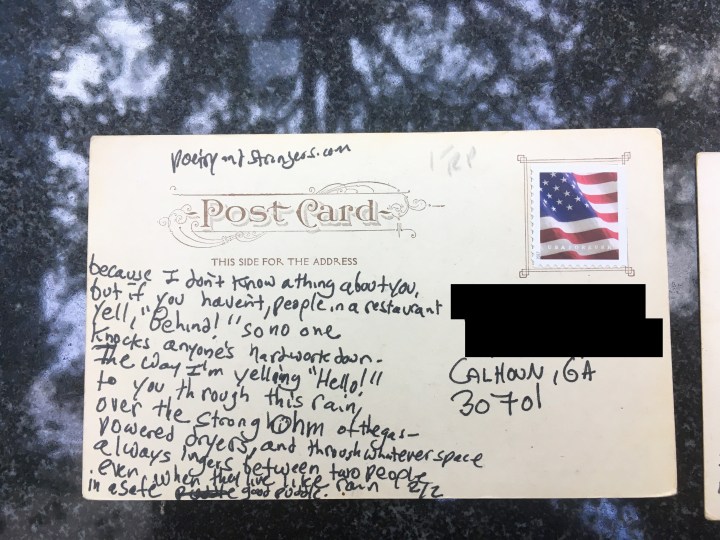 poetryandstrangers.com
Post Card
THIS SIDE FOR THE ADDRESS
USA FOREVER
because I don't know a thing about you,
but if you haven't, people in a restaurant
yell, "Behind!" so no one
knocks anyone's hard work down.
The way I'm yelling "Hello!"
to you through this rain,
over the strong ohm of the gas-
powered dryers, and through whatever space
always lingers between two people
even when they live like rain
in a safe good puddle. 2/2
CALHOUN, GA
30701